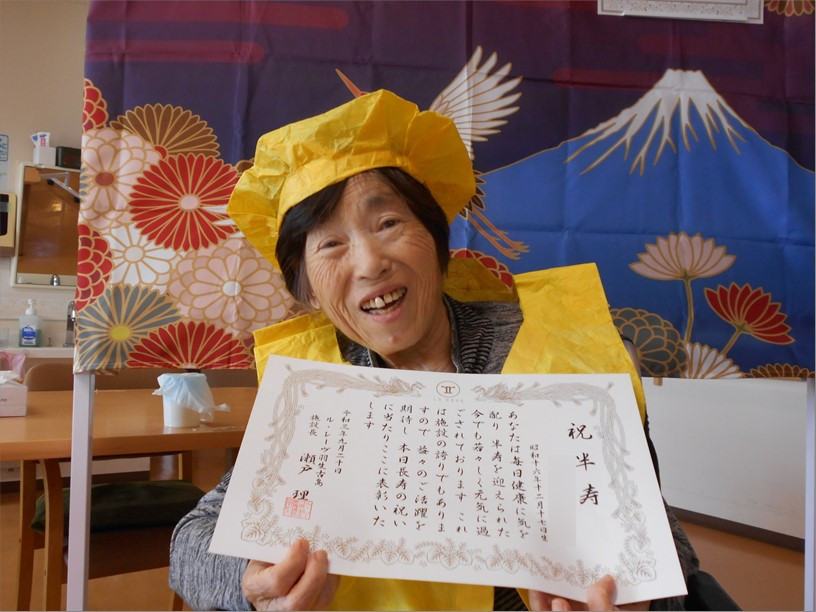 祝 半 寿
昭和十六年十二月十七日生
あなたは毎日健康に気を
配り 半寿を迎えられた
今でも若々しく元気に過
ごされております これ
は施設の誇りでもありま
すので 益々のご活躍を
期待し 本日長寿の祝い
に当たりここに表彰いた
します
令和三年九月二十日
ル・レーヴ羽生古萬
施設長 瀬戸 理